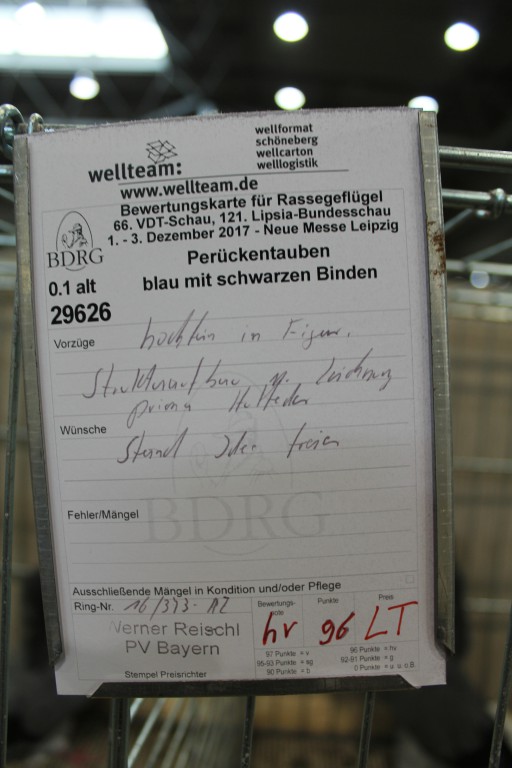 wellteam:
wellformat
schöneberg
wellcarton
welllogistik
www.wellteam.de
BDRG
Bewertungskarte für Rassegeflügel
66. VDT-Schau, 121. Lipsia-Bundesschau
1. - 3. Dezember 2017 - Neue Messe Leipzig
Perückentauben
0.1 alt blau mit schwarzen Binden
29626
Vorzüge hochfein in Figur,
Strukturaufbau u. Zeichnung
prima Halfter
Wünsche
Stand freier
Fehler/Mängel
BDRG
Ausschließende Mängel in Kondition und/oder Pflege
Ring-Nr. 16/373- AZ
Werner Reischl
PV Bayern
Stempel Preisrichter
Bewertungs-
note Punkte Preis
hv 96 LT
97 Punkte = v 96 Punkte = hv
95-93 Punkte = sg 92-91 Punkte = g
90 Punkte = b 0 Punkte = u. u. o.B.